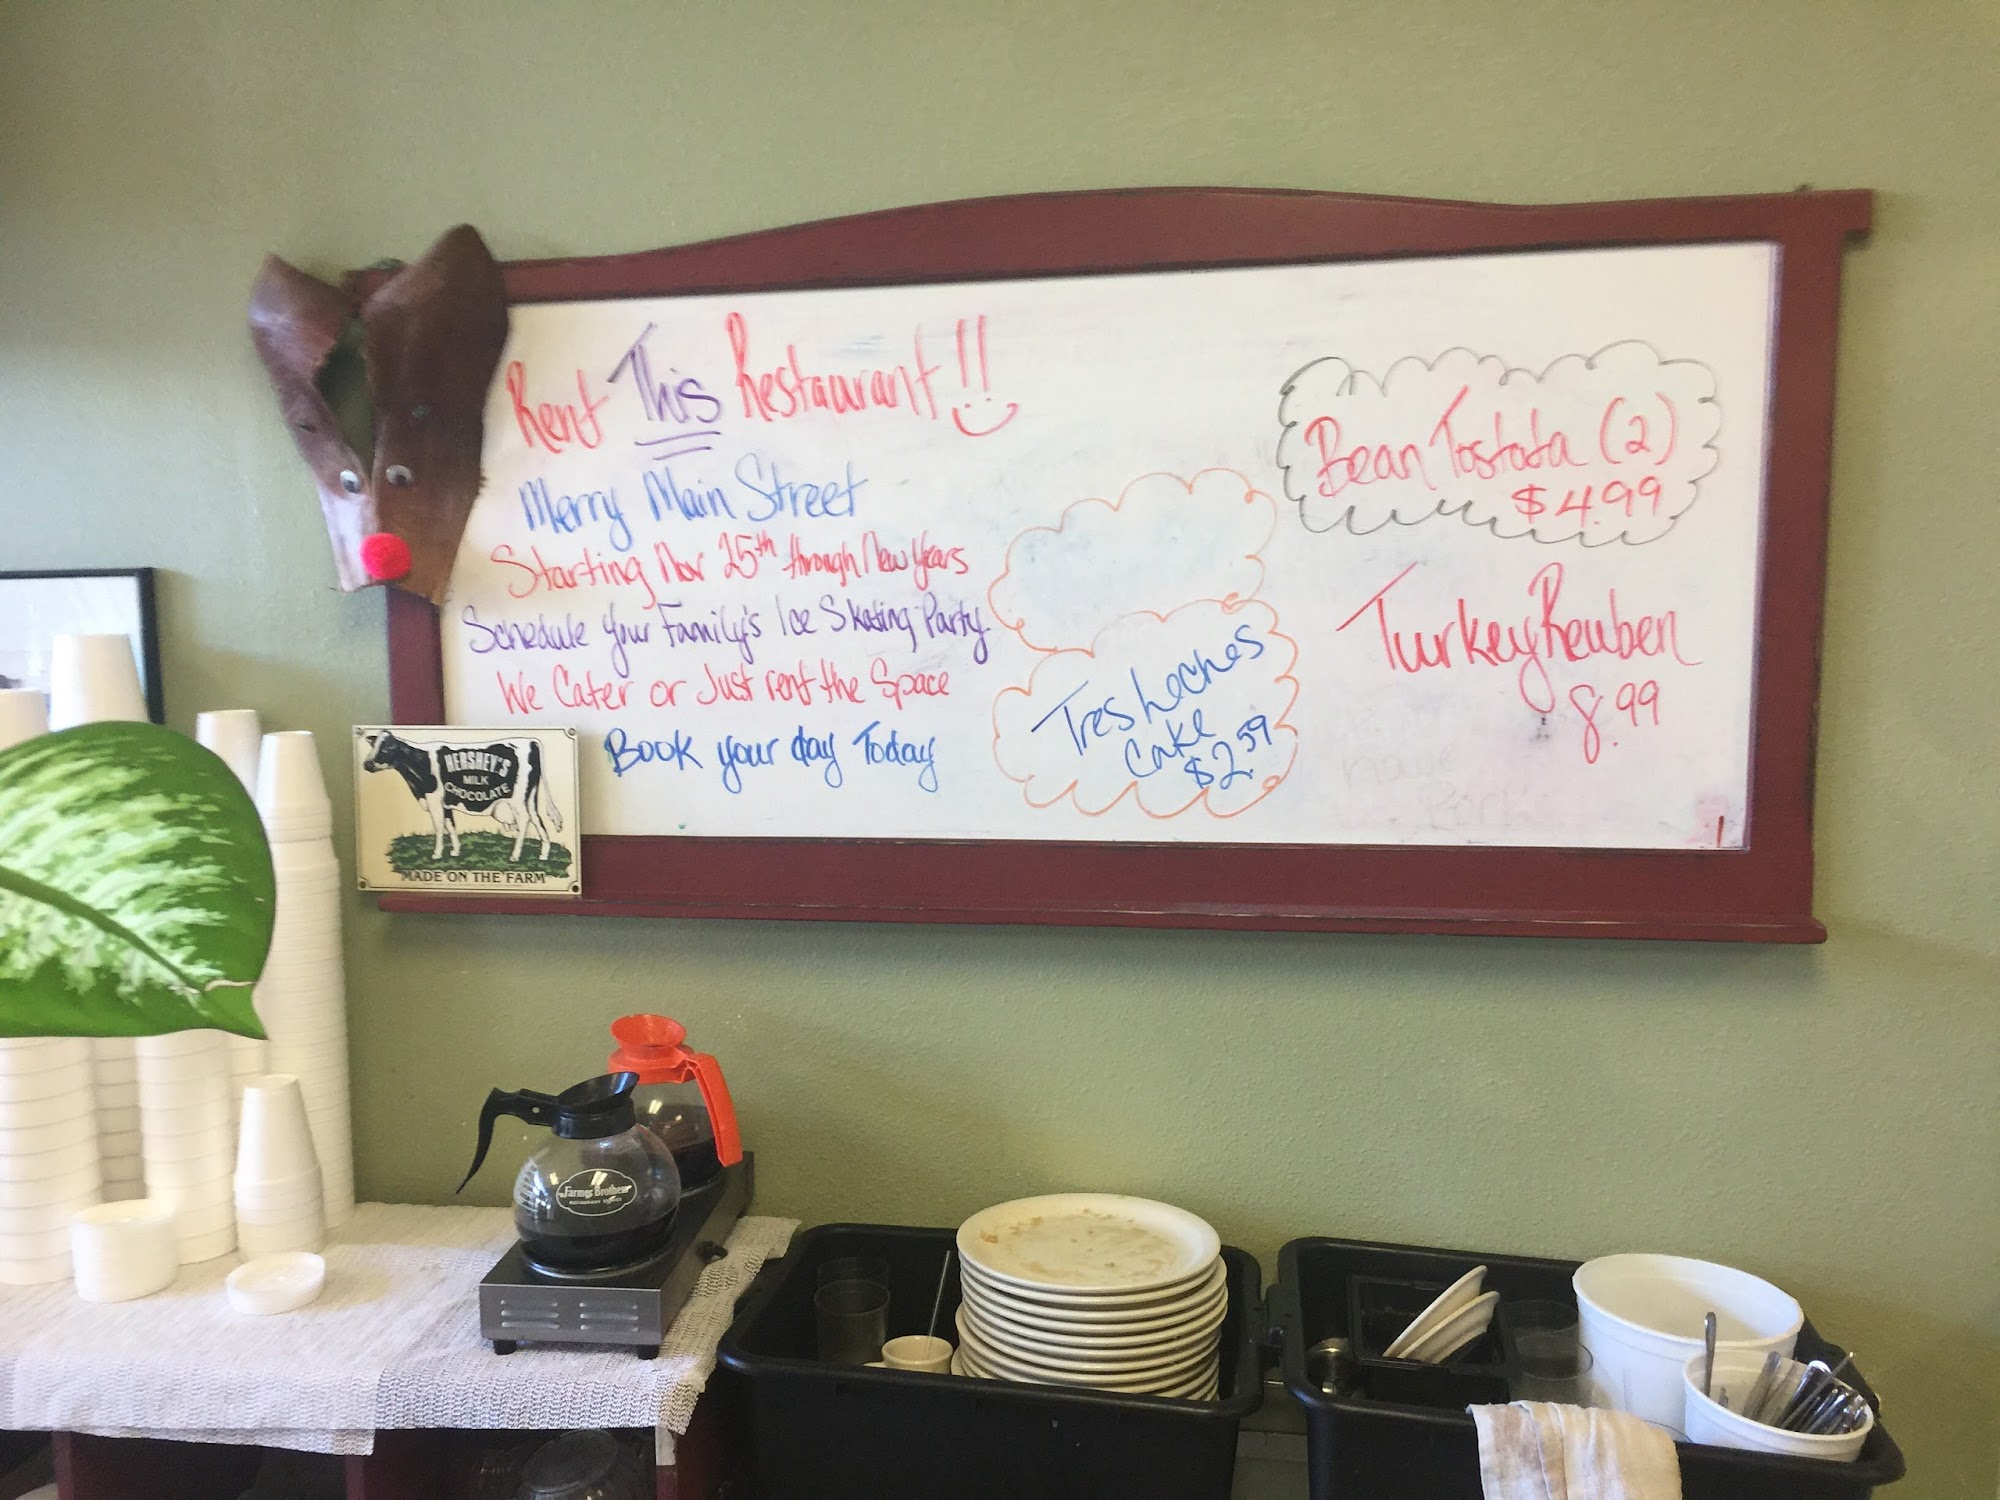 Rent This Restaurant!!
Merry Main Street
Starting Nov 25th through New Years
Schedule your Family's Ice Skating Party
We Cater or Just rent the Space
Book your day Today
Tres Leches
Cake
$2.59
Bean Tostata (2)
$4.99
Turkey Reuben
8.99
HERSHEY'S
MILK
CHOCOLATE
MADE ON THE FARM
Farmer Brothers